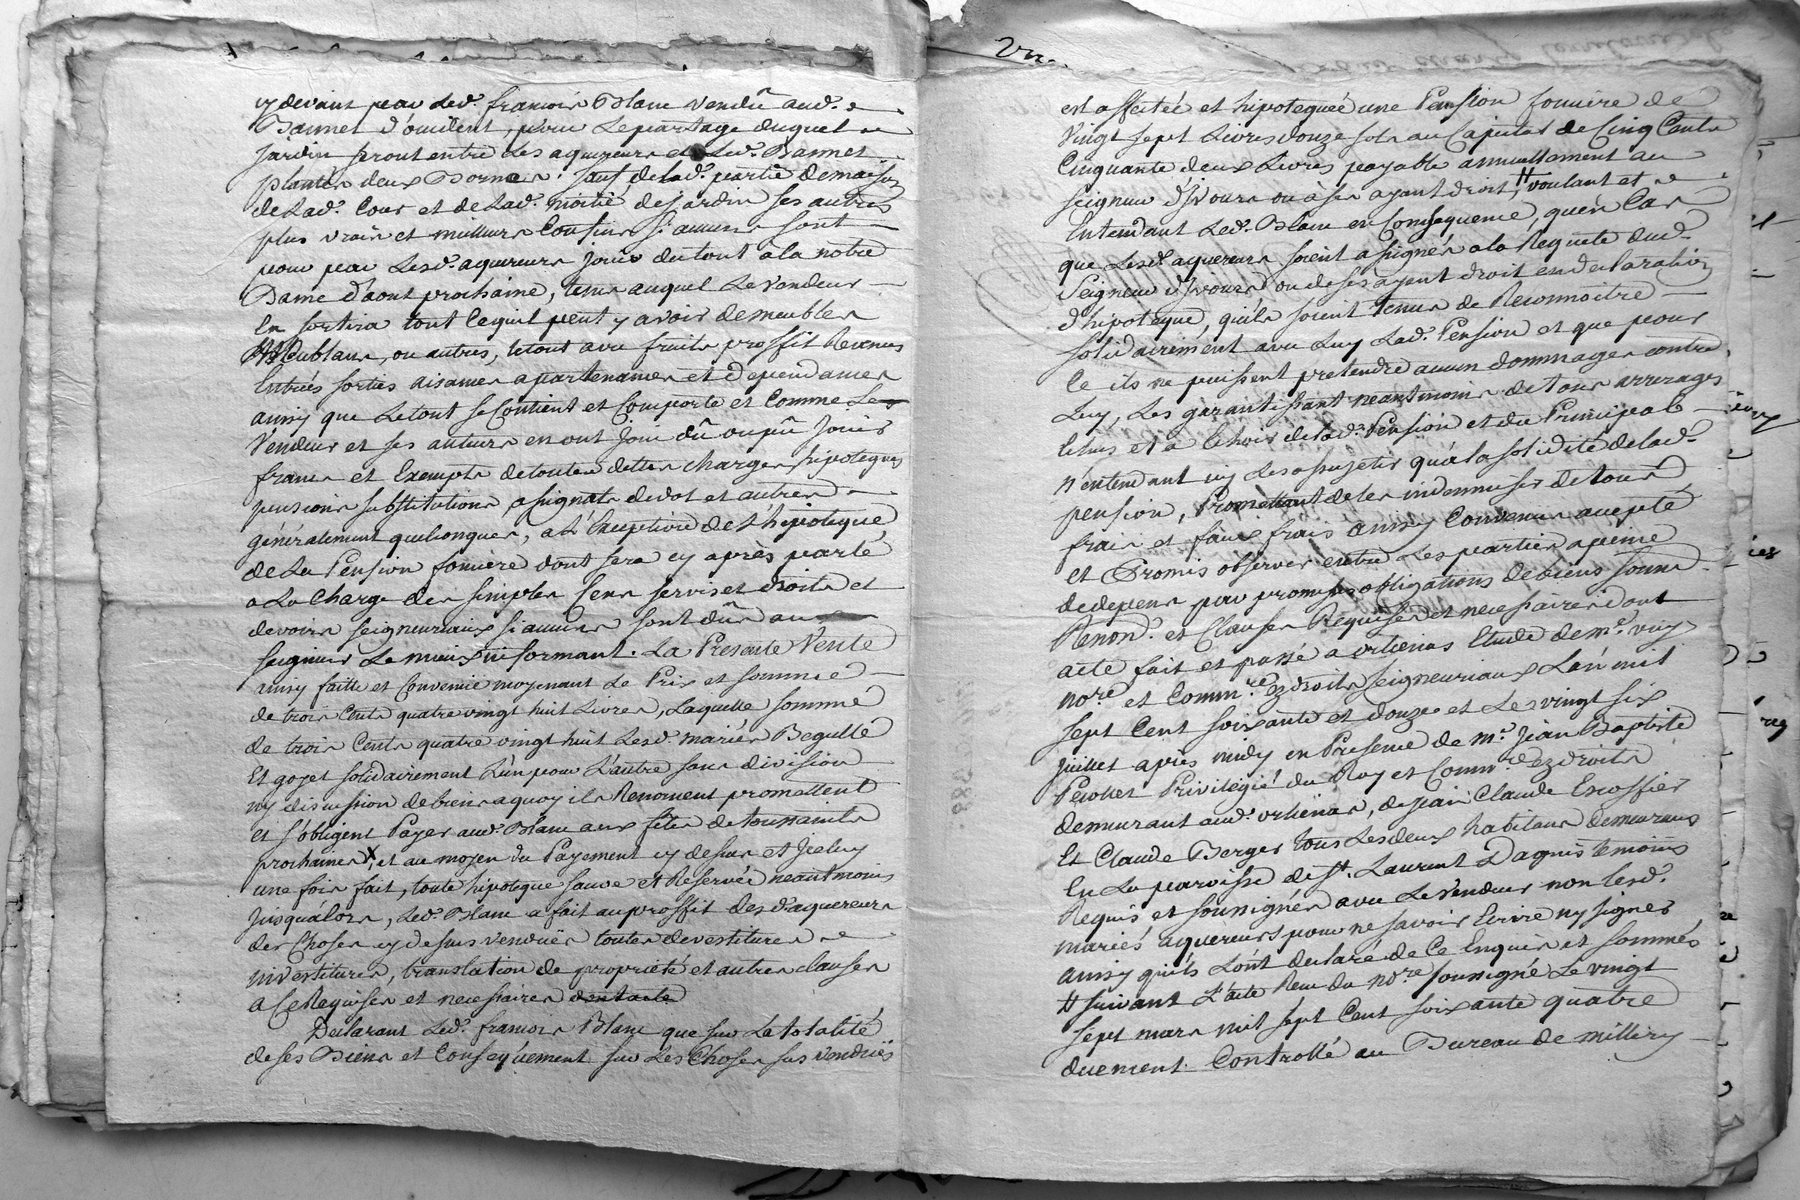 cy devant par led. francois Blanc vendu aud.
Bannet d'occident, pour le partage duquel
jardin seront entre les aquereurs et led. Bannet
plantés deux Bornes. sauf de lad. partie de maison
de lad. Cour et de lad. moitié de jardin ses autres
plus vrais et meilleurs Confins si aucuns sont
pour par lesd. aquereurs jouir du tout à la notre
Dame d'aout prochaine, tems auquel le vendeur
En sortira tout ce qu'il peut y avoir de meubles
Meublans, ou autres, le tout avec fruits proffit Revenus
Entrées sorties aisances appartenances et dependances
ainsy que le tout se Contient et Comporte et Comme le
Vendeur et ses auteurs en ont joui dû ou pû jouir
francs et Exempts de toutes dettes charges hipoteques
pensions substitutions assignats de dot et autres
généralement quelconques, à L'Exception de L'hipoteque
de La Pension fonciere dont sera cy après parlé
a La Charge des simples Cens servis et droits et
devoirs seigneuriaux si aucuns sont dûs au
seigneur le mieux informant. La Presente Vente
ainsy faitte et Convenue moyenant Le Prix et somme
de trois Cents quatre vingt huit Livres, Laquelle somme
de trois Cents quatre vingt huit Lesd. mariés Begulle
Et goyet solidairement L'un pour L'autre sans division
ny discussion de biens a quoy ils Renoncent promettent
et s'obligent Payer aud. Blanc aux fêtes de toussaints
prochaines X et au moyen du Payement cy dessus et Jceluy
une fois fait, toute hipoteque sauve et Reservée neantmoins
jusqu'alors, Led. Blanc a fait au proffit desd. aquereurs
des Choses cy dessus vendues toutes devestitures
investitures, translation de proprieté et autres clauses
a Ce Requises et necessaires
Declarant Led. francois Blanc que sur La totalité
de ses Biens et Consequement sur Les Choses sus vendues
est affectée et hipotequée une Pension fonciere de
Vingt sept Livres douze sols au Capital de Cinq Cents
Cinquante deux Livres payable annuellement au
seigneur d'yvours ou à ses ayant droit, # voulant et
Entendant Led. Blanc en Consequence, qu'en Cas
que Lesd. aquereurs soient assignés a la Requete dud.
Seigneur d'yvours ou de ses ayant droit en declaration
d'hipoteque, qu'ils soient tenus de Reconnoitre
solidairement avec Luy Lad. Pension et que pour
Ce ils ne puissent pretendre aucun dommages contre
Luy, Les garantissant neantmoins de tous arrerages
Echus et à Echoir de lad. Pension et du Principal
n'entendant icy Les assujetir qu'à la solidité de lad.
pension, Promettant de les indemniser de tous
frais et faux frais ainsy Convenu accepté
et Promis observer entre Les parties a peine
de depens par promesses obligations de biens soum.
Renon. et Clauses Requises et necessaires dont
acte fait et passé a orlienas Etude de me. vuy
nore. et Commre. ez droits seigneuriaux L'an mil
sept Cent soixante et douze et Les vingt six
juillet après midy en Presence de mr. Jean Baptiste
Privilégié du Roy et Commre. ez droits
demeurant aud. orlienas, de jean Claude Escoffier
Et Claude Berger tous Les deux habitans demeurans
En La paroisse de St. Laurent D'agnis temoins
Requis et soussignés avec Le Vendeur non lesd.
mariés aquereurs pour ne savoir Ecrire ny signer
ainsy qu'ils L'ont declaré de Ce Enquis et sommés
# suivant L'acte Recu du nore. soussigné Le vingt
sept mars mil sept Cent soixante quatre
duement Controllé au Bureau de millery